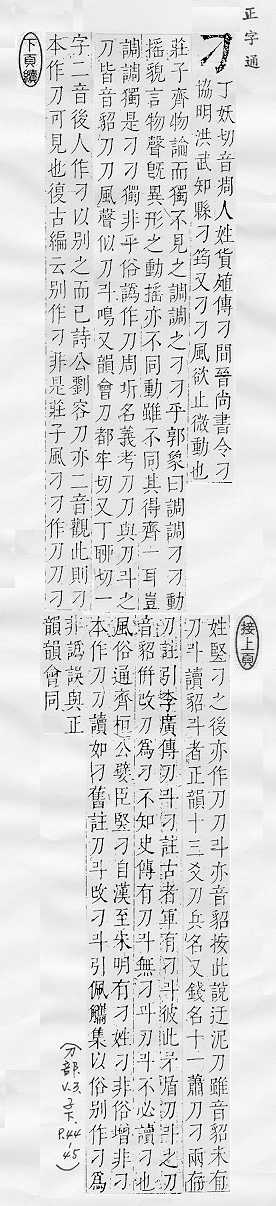 正字通
刁 丁妖切音凋人姓貨殖傳刁間晉尚書令刁
協明洪武知縣刁筠又刁刁風欲止微動也
莊子齊物論而獨不見之調調之刁刁乎郭象曰調調刁刁動
搖貌言物聲旣異形之動搖亦不同動雖不同其得齊一耳豈
調調獨是刁刁獨非乎俗譌作刀周圻名義考刀刀與刀斗之
刀皆音貂刀刀風聲似刀斗鳴又韻會刀都牢切又丁聊切一
字二音後人作刁以别之而已詩公劉容刀亦二音觀此則刁
本作刀可見也復古編云别作刁非是莊子風刁刁作刀刀刁
下頁續
接上頁
姓竪刁之後亦作刀刀斗亦音貂按此說迂泥刀雖音貂未有
刀斗讀貂斗者正韻十三爻刀兵名又錢名十一蕭刀刁兩存
刀註引李廣傳刀斗刁註古者軍有刁斗彼此矛盾刀非之刀
音貂倂改刀爲刁不知史傳有刀斗無刁斗刀斗不必讀刁也
風俗通齊桓公嬖臣竪刁自漢至宋明有刁姓刁非俗增非刁
本作刀刀讀如刁舊註刀斗改刁斗引佩觿集以俗别作刁爲
非譌誤與正
韻韻會同
(刀部. V.3. 子下. P.44-45)